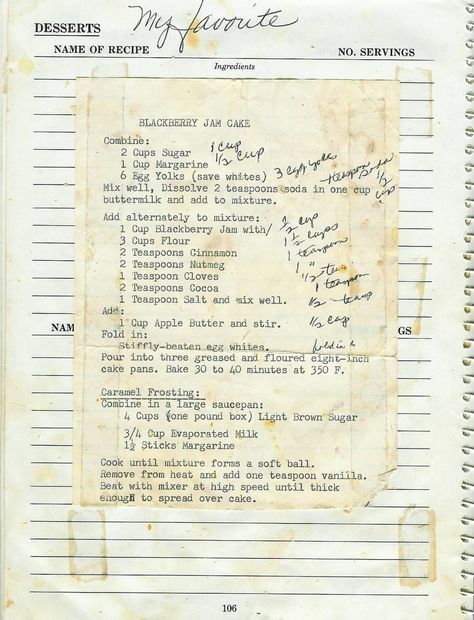 My favorite
DESSERTS
NAME OF RECIPE NO. SERVINGS
Ingredients
BLACKBERRY JAM CAKE
Combine:
2 Cups Sugar 1 cup
1 Cup Margarine 1/2 cup
6 Egg Yolks (save whites) 3 egg yolks
Mix well, Dissolve 2 teaspoons soda in one cup teaspoon soda 1/2 cup
buttermilk and add to mixture.
Add alternately to mixture:
1 Cup Blackberry Jam with/ 1/2 cup
3 Cups Flour 1 1/2 cups
2 Teaspoons Cinnamon 1 teaspoon
2 Teaspoons Nutmeg 1 "
1 Teaspoon Cloves 1/2 tea
2 Teaspoons Cocoa 1 teaspoon
1 Teaspoon Salt and mix well. 1/2
Add:
1 Cup Apple Butter and stir. 1/2 cup
NAM GS
Fold in:
Stiffly-beaten egg whites. fold in
Pour into three greased and floured eight-inch
cake pans. Bake 30 to 40 minutes at 350 F.
Caramel Frosting:
Combine in a large saucepan:
4 Cups (one pound box) Light Brown Sugar
3/4 Cup Evaporated Milk
1½ Sticks Margarine
Cook until mixture forms a soft ball.
Remove from heat and add one teaspoon vanilla.
Beat with mixer at high speed until thick
enough to spread over cake.
106